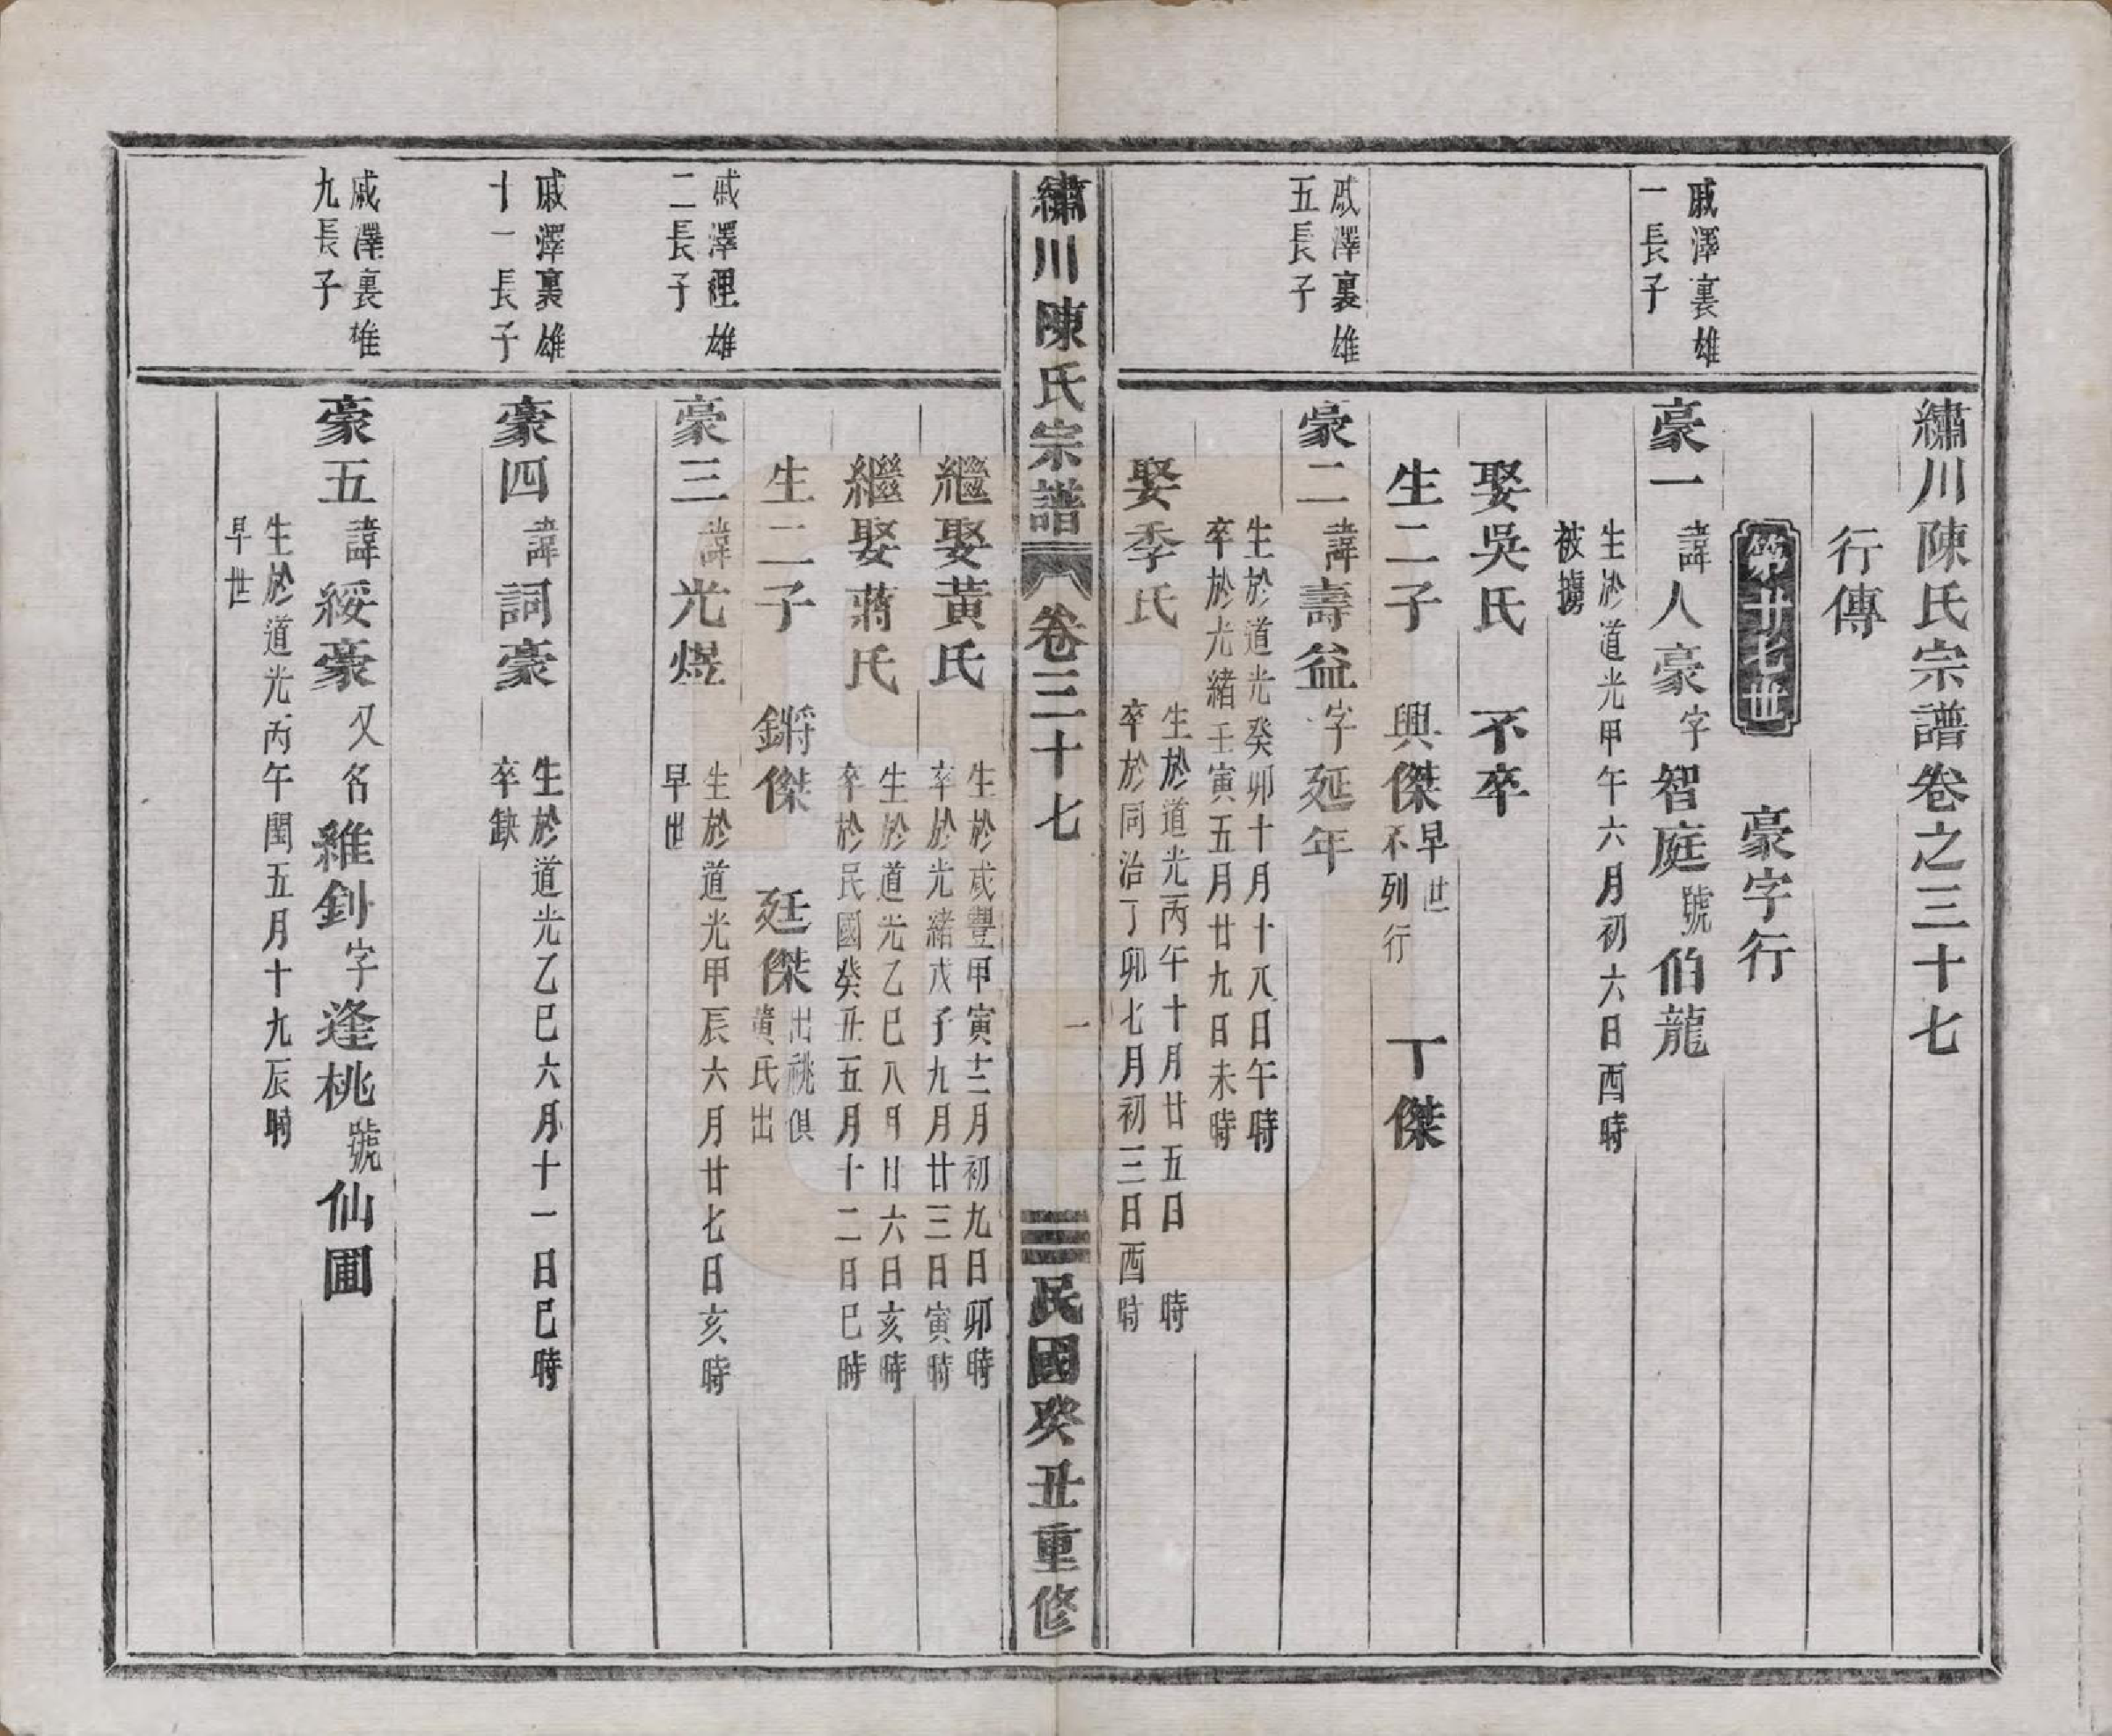 繡川陳氏宗譜卷之三十七
行傳
第廿七世 豪字行
戚澤裏雄
一長子
豪一諱人豪字智庭號伯龍
生於道光甲午六月初六日酉時
被擄
娶吳氏 不卒
生二子 興傑早世不列行 丁傑
戚澤裏雄
五長子
豪二諱壽益字延年
生於道光癸卯十月十八日午時
卒於光緒壬寅五月廿九日未時
娶季氏
生於道光丙午十月廿五日 時
卒於同治丁卯七月初三日酉時
繡川陳氏宗譜 卷三十七 一 民國癸丑重修
繼娶黃氏
生於咸豐甲寅十二月初九日卯時
卒於光緒戊子九月廿三日寅時
繼娶蔣氏
生於道光乙巳八月廿六日亥時
卒於民國癸丑五月十二日巳時
生二子 鏘傑 廷傑出祧俱黃氏出
戚澤裡雄
二長子
豪三諱光煜
生於道光甲辰六月廿七日亥時
早世
戚澤裏雄
十一長子
豪四諱詞豪
生於道光乙巳六月十一日巳時
卒缺
戚澤裏雄
九長子
豪五諱綏豪又名維釗字逢桃號仙圃
生於道光丙午閏五月十九辰時
早世